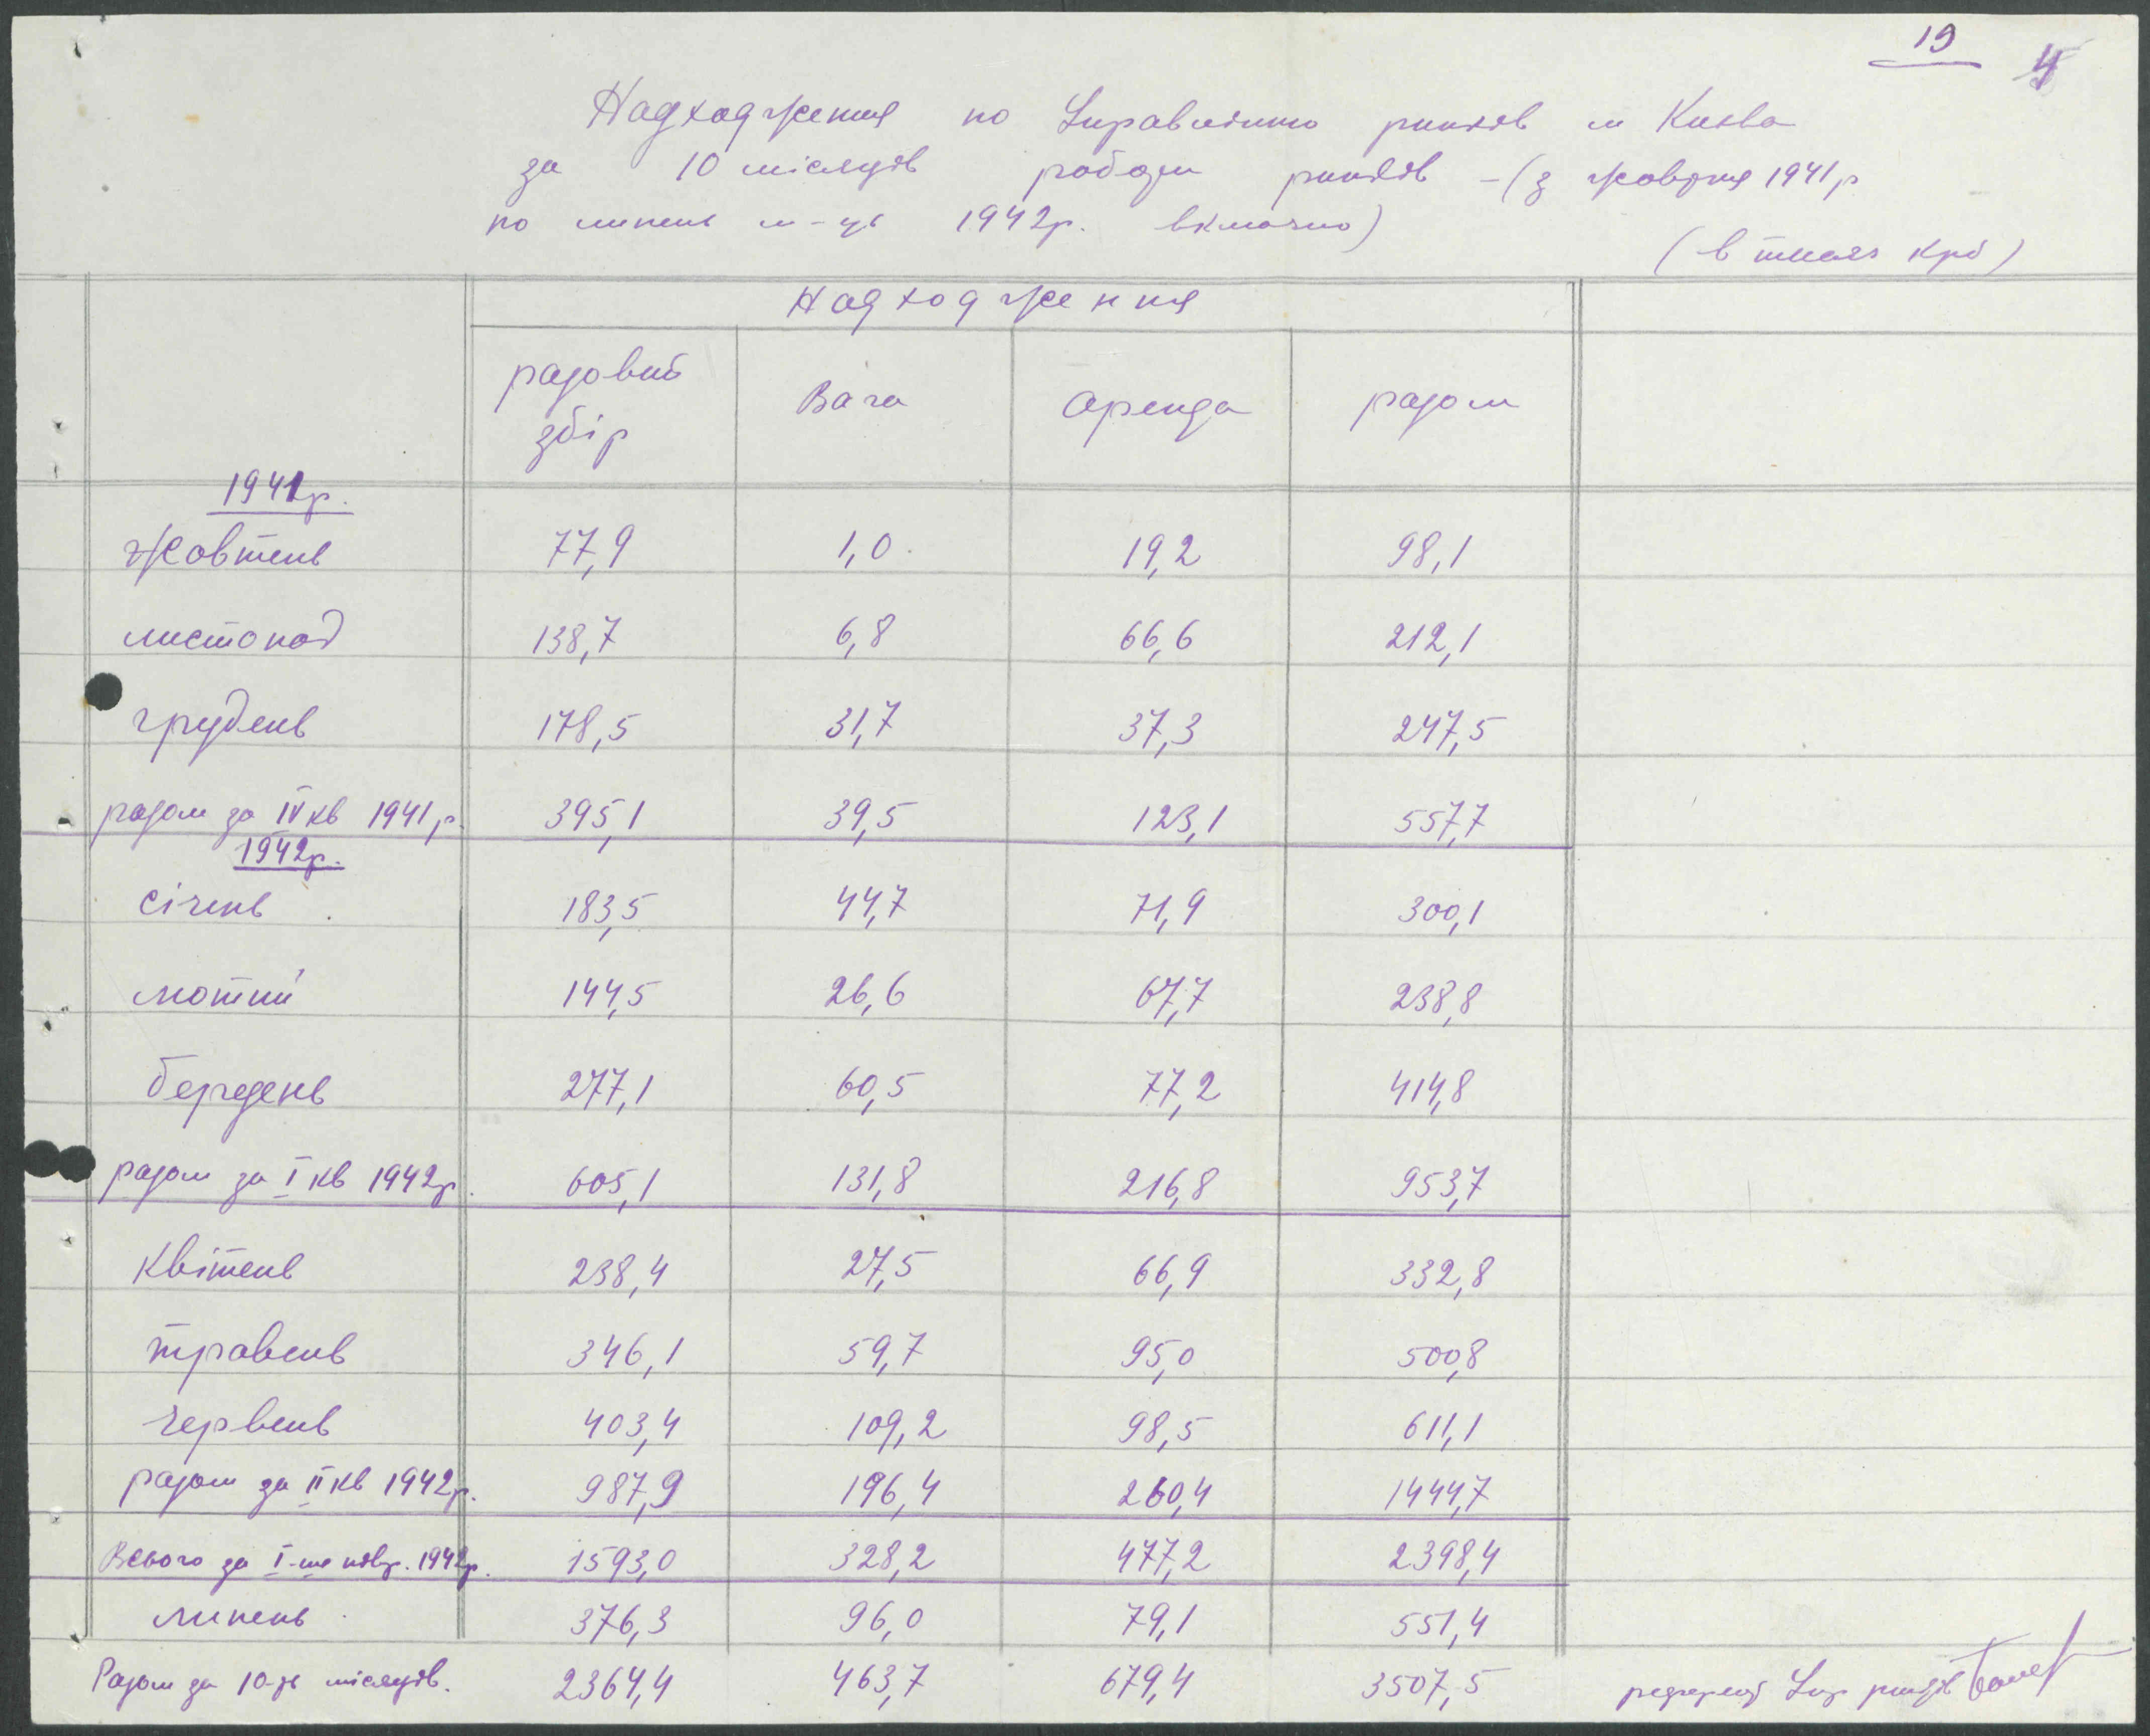 19 4
Надходження по Управлінню ринків м Києва
за 10 місяців роботи ринків – (з жовтня 1941 р
по липень м-ць 1942 р. включно)
(в тисяч крб)
Надходження
разовий збір Вага Аренда разом
1941 р.
жовтень 77,9 1,0 19,2 98,1
листопад 138,7 6,8 66,6 212,1
грудень 178,5 31,7 37,3 247,5
разом за IV кв 1941 р. 395,1 39,5 123,1 557,7
1942 р.
січень 183,5 44,7 71,9 300,1
лютий 144,5 26,6 67,7 238,8
березень 277,1 60,5 77,2 414,8
разом за I кв 1942 р. 605,1 131,8 216,8 953,7
квітень 238,4 27,5 66,9 332,8
травень 346,1 59,7 95,0 500,8
червень 403,4 109,2 98,5 611,1
разом за II кв 1942 р. 987,9 196,4 260,4 1444,7
Всього за I-ше півр. 1942 р. 1593,0 328,2 477,2 2398,4
липень 376,3 96,0 79,1 551,4
Разом за 10-ть місяців. 2364,4 463,7 679,4 3507,5 референт Упр ринків